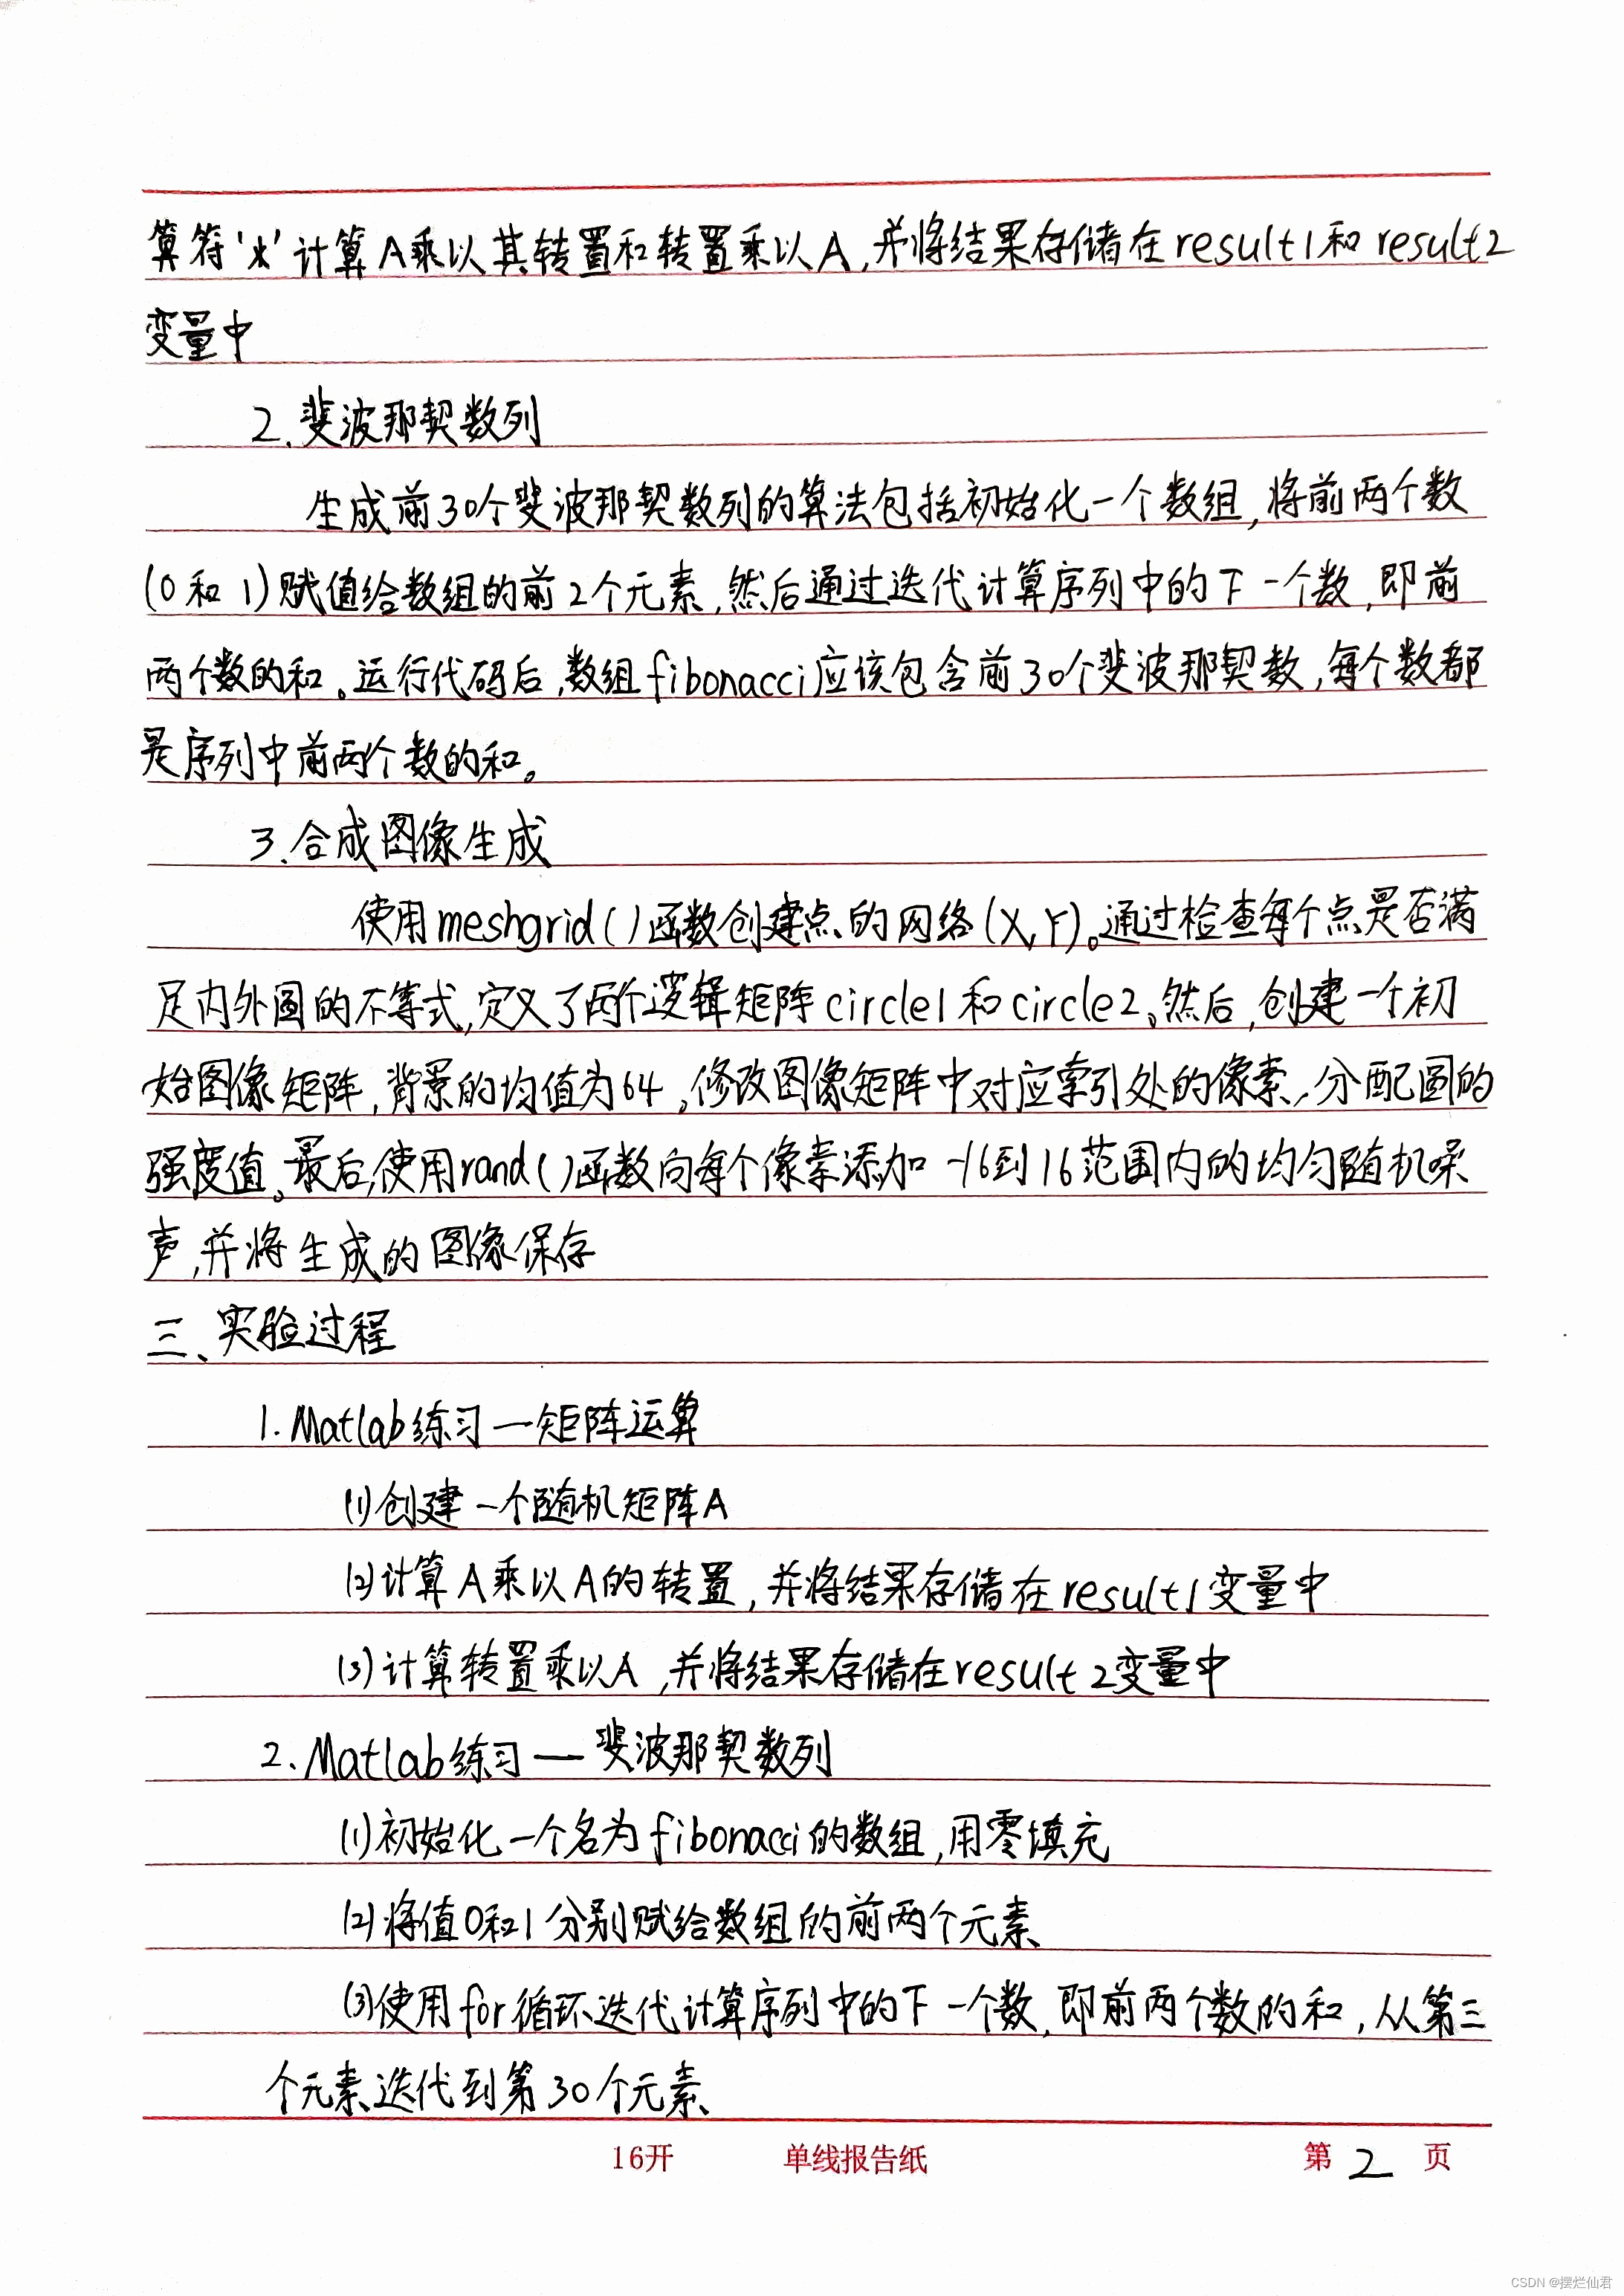 算符'*'计算A乘以其转置和转置乘以A,并将结果存储在result1和result2
变量中
2.斐波那契数列
生成前30个斐波那契数列的算法包括初始化一个数组,将前两个数
(0和1)赋值给数组的前2个元素,然后通过迭代计算序列中的下一个数,即前
两个数的和。运行代码后,数组fibonacci应该包含前30个斐波那契数,每个数都
是序列中前两个数的和。
3.合成图像生成
使用meshgrid()函数创建点的网络(X,Y)。通过检查每个点是否满
足内外圆的不等式,定义了两个逻辑矩阵circle1和circle2。然后,创建一个初
始图像矩阵,背景的均值为64。修改图像矩阵中对应索引处的像素,分配圆的
强度值。最后,使用rand()函数向每个像素添加-16到16范围内的均匀随机噪
声,并将生成的图像保存
三、实验过程
1.Matlab练习一矩阵运算
(1)创建一个随机矩阵A
(2)计算A乘以A的转置,并将结果存储在result1变量中
(3)计算转置乘以A,并将结果存储在result2变量中
2.Matlab练习——斐波那契数列
(1)初始化一个名为fibonacci的数组,用零填充
(2)将值0和1分别赋给数组的前两个元素
(3)使用for循环迭代计算序列中的下一个数,即前两个数的和,从第三
个元素迭代到第30个元素
16开 单线报告纸 第2页
CSDN @摆烂仙君